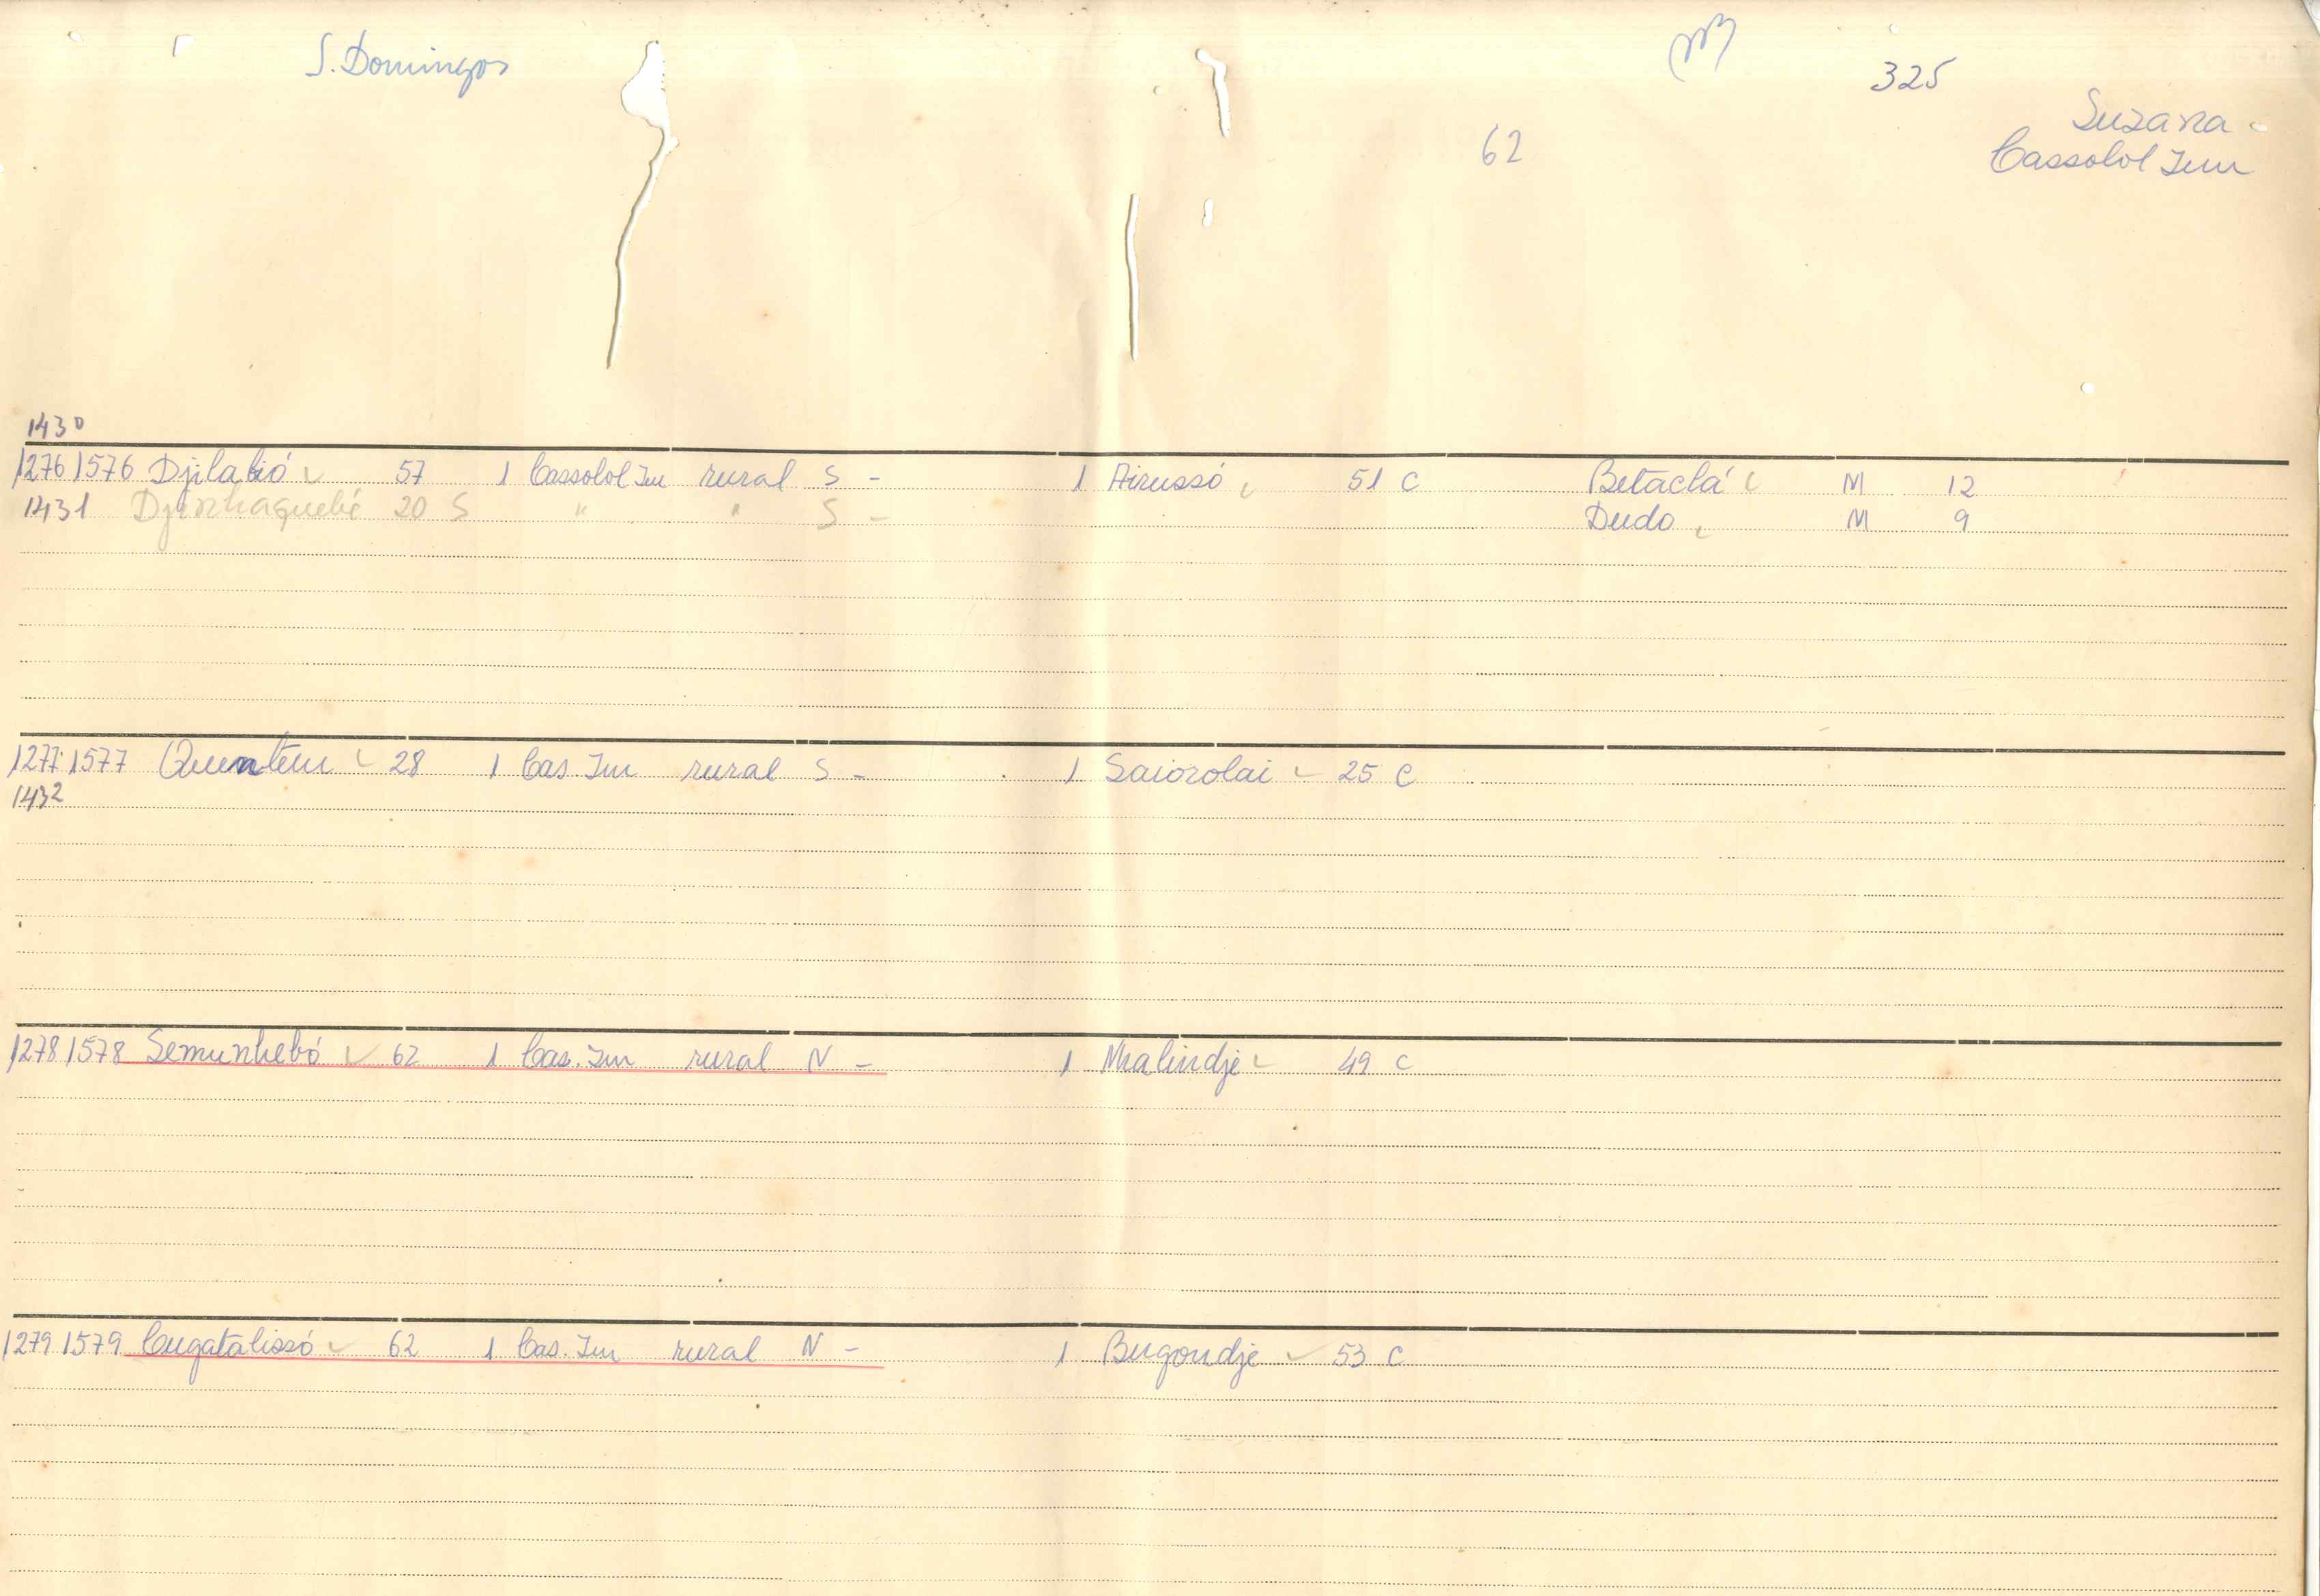 S. Domingos
325
62
Suzana
Cassolol Jm
1430
1276 1576 Djilabió 57 1 Cassolol Jm rural S - 1 Airussó 51 C Betaclá M 12
1431 20 S " " S - Dudo M 9
1277 1577 Quentem 28 1 Cas Jm rural S - 1 Saiorolai 25 C
1432
1278 1578 Semunhebó 62 1 Cas. Jm rural N - 1 Malindje 49 C
1279 1579 Cugatalissó 62 1 Cas. Jm rural N - 1 Bugondje 53 C